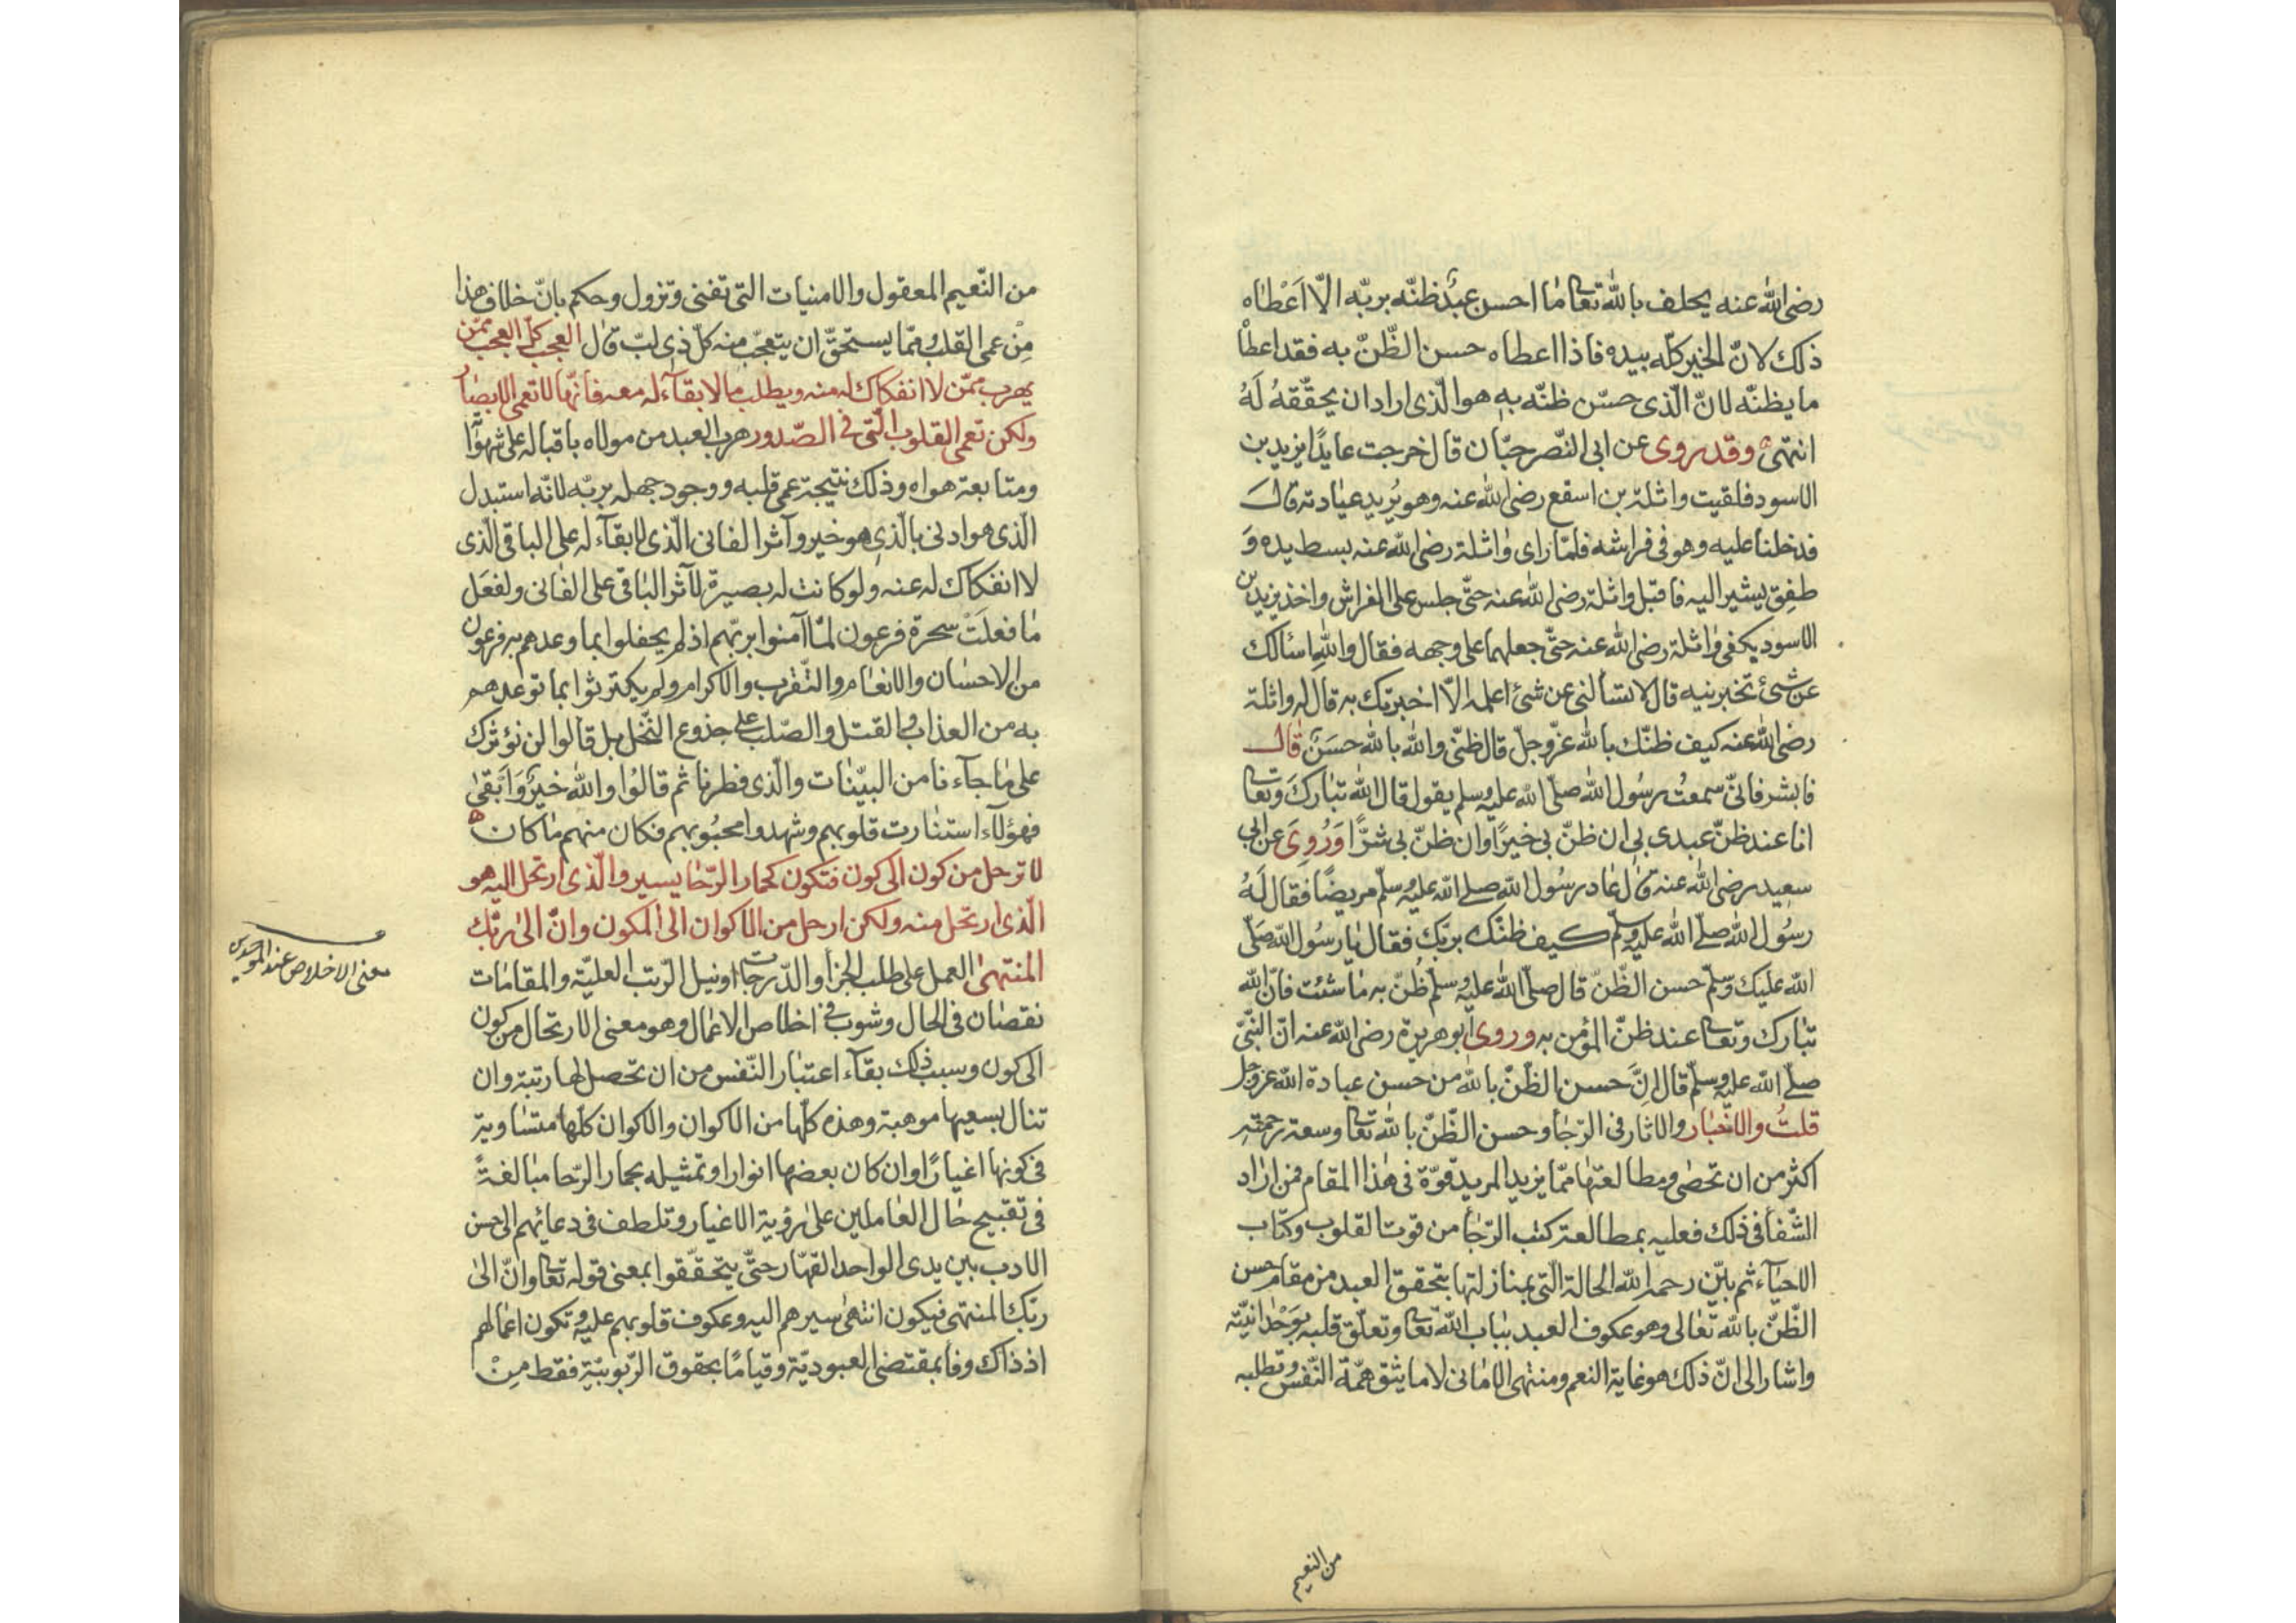 رضى الله عنه يحلف بالله تعا ما احسن عبد ظنّه بربّه الّا اَعْطاه
ذلك لانّ الخير كلّه بيده فاذا اعطاه حسن الظّنّ به فقد اعطاْ
ما يظنّه لانّ الّذى حسّن ظنّه به هو الّذى اراد ان يحقّقهُ لَهُ
انتهى وقد روى عن ابى النّصر حبّان قال خرجت عايدًا يزيد بن
الاسود فلقيت واثلة بن اسقع رضى الله عنه وهو يُريد عيادته قالَ
فدخلنا عليه وهو فى فراشه فلمّا راى واثلة رضى الله عنه بسط يده وَ
طفِق يشير اليه فاقبل واثلة رضى الله عنه حتّى جلس على الفراش واخذ يزيد بن
الاسود بكفى واثلة رضى الله عنه حتّى جعلهما على وجهه فقال والله اسئالك
عن شئ تخبرنيه قال لا تسألنى عن شئ اعلمه الّا اخبرتك به قال له واثلة
رضى الله عنه كيف ظنّك بالله عزّ وجلّ قال ظنّى والله بالله حسَنٌ قال
فابشر فانّى سمعتُ رسُول الله صلّى الله عليه وسلم يقول قال الله تبارك وتعا
انا عند ظنّ عبدى بى ان ظنّ بى خيرًا وان ظنّ بى شرًّا وَرُوِىَ عن ابى
سعيد رضى الله عنه قال عاد رسُول الله صلى الله عليه وسلّم مريضًا فقال لَهُ
رسُول الله صلّى الله عليه وسلّم كيف ظنّك بربّك فقال يا رسُول الله صَلّى
الله عليك وسّلم حسن الظّنّ قال صلّى الله عليه وسلم ظُنّ به ما شئت فانّ الله
تبارك وتعا عند ظنّ المؤمن به وروى ابو هريرة رضى الله عنه انّ النبّىّ
صلّى الله عليه وسلّم قال اِنَّ حسن الظّنّ بالله من حسن عبادة الله عزّ وجل
قلتُ والاخْبار والاثار فى الرّجأ وحسن الظّنّ بالله تعا وسعة رحمته
اكثر من ان تحصٰى ومطالعتها ممّا يزيد المريد قوّة فى هٰذا المقام فمن اراد
الشّفأ فى ذلك فعليه بمطالعة كتب الرّجأ من قوت القلوب وكتاب
الاحيآء ثم بيّن رحمه الله الحالة الّتى بمنازلتها يتحقق العبد من مقام حسن
الظّنّ بالله تعالى وهو عكوف العبد بباب الله تعا وتعلّق قلبه بوَحْدانيّته
واشار الى انّ ذلك هو غاية النعم ومنتهى الامانى لا ما يثق همّة النّفس وتطلبه
من النعيم
من النّعيم المعقول والامنيات التى تفنى وتزول وحكم بانّ خلاف هذا
مِنْ عمى القلب وممّا يستحقّ ان يتعجّب منه كلّ ذى لبّ قال العجب كلّ العجب ممّن
يهرب ممّن لا انفكاك له منه ويطلب ما لا بقآء له معه فانّها لا تعمى الابصار
ولكن تعمى القلوب الّتى فى الصّدور هرب العبد من مولاه باقباله على شهوآا
ومتابعة هواه وذلك نتيجة عمى قلبه ووجود جهله بربّه لانّه استبدل
الّذى هو ادنى بالّذى هو خير وآثر الفانى الّذى لا بقآء له على الباقى الّذى
لا انفكاك له عنه ولو كانت له بصيرة لآثر الباقى على الفانى ولفعَل
ما فعلَتْ سحرة فرعون لمّا آمنوا بربّهم اذ لم يحفلوا بما وعدهم به فرعون
من الاحسان والانعام والتّقرب والاكرام ولم يكترثوا بما توعّدهم
به من العذاب والقتل والصّلب على جذوع النّخل بل قالوا لن نؤثرك
على ما جآءنا من البيّنات والّذى فطرنا ثم قالُوا والله خيرٌ وَاَبْقىٰ
فهؤلآء استنارت قلوبهم وشهدوا محبُوبهم فكان منهم ما كان
لا ترحل من كون الى كون فتكون كحمار الرّحا يسير والّذى ارتحل اليه هو
الّذى ارتحل منه ولكن ارحل من الاكوان الى المكون وانّ الى ربّك
المنتهىٰ العمل على طلب الجزأ والدّرجات او نيل الرّتب العليّة والمقامات
نقصان فى الحال وشوب فى اخلاص الاعمال وهو معنى الارتحال من كون
الى كون وسبب ذلك بقآء اعتبار النّفس من ان تحصل لها رتبة وان
تنال بسعيها موهبة وهذه كلّها من الاكوان والاكوان كلّها متساوية
فى كونها اغيارًا وان كان بعضها انوارا وتمثيله بحمار الرّحا مبالغةً
فى تقبيح حال العاملين على رؤية الاغيار وتلطف فى دعائهم الى حسن
الادب بين يدى الواحد القهّار حتّى يتحقّقوا بمعنى قوله تعا وانّ الىٰ
ربّك المنتهى فيكون انتهىٰ سيرهم اليه وعكوف قلوبهم عليه وتكون اعمالهم
اذ ذاك وفا بمقتضى العبوديّة وقيامًا بحقوق الرّبوبيّة فقط مِنْ
معنى الاخلاص عند الموحدين